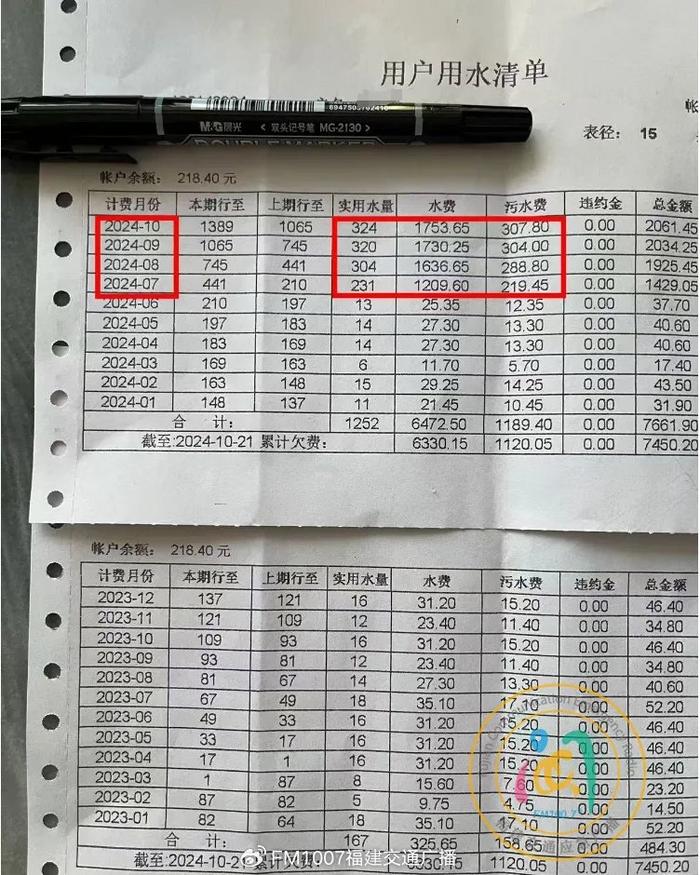 用户用水清单
6947503762416
M&G晨光 < 双头记号笔 MG-2130 >
DOUBLE MARKER
表径: 15
帐户余额: 218.40 元
计费月份 本期行至 上期行至 实用水量 水费 污水费 违约金 总金额
2024-10 1389 1065 324 1753.65 307.80 0.00 2061.45
2024-09 1065 745 320 1730.25 304.00 0.00 2034.25
2024-08 745 441 304 1636.65 288.80 0.00 1925.45
2024-07 441 210 231 1209.60 219.45 0.00 1429.05
2024-06 210 197 13 25.35 12.35 0.00 37.70
2024-05 197 183 14 27.30 13.30 0.00 40.60
2024-04 183 169 14 27.30 13.30 0.00 40.60
2024-03 169 163 6 11.70 5.70 0.00 17.40
2024-02 163 148 15 29.25 14.25 0.00 43.50
2024-01 148 137 11 21.45 10.45 0.00 31.90
合 计: 1252 6472.50 1189.40 0.00 7661.90
截至:2024-10-21 累计欠费: 6330.15 1120.05 0.00 7450.20
帐户余额: 218.40 元
计费月份 本期行至 上期行至 实用水量 水费 污水费 违约金 总金额
2023-12 137 121 16 31.20 15.20 0.00 46.40
2023-11 121 109 12 23.40 11.40 0.00 34.80
2023-10 109 93 16 31.20 15.20 0.00 46.40
2023-09 93 81 12 23.40 11.40 0.00 34.80
2023-08 81 67 14 27.30 13.30 0.00 40.60
2023-07 67 49 18 35.10 17.10 0.00 52.20
2023-06 49 33 16 31.20 15.20 0.00 46.40
2023-05 33 17 16 31.20 15.20 0.00 46.40
2023-04 17 1 16 31.20 15.20 0.00 46.40
2023-03 1 87 8 15.60 7.60 0.00 23.20
2023-02 87 82 5 9.75 4.75 0.00 14.50
2023-01 82 64 18 35.10 17.10 0.00 52.20
合 计: 167 325.65 158.65 0.00 484.30
截至:2024-10-21 累计欠费: 6330.15 1120.05 0.00 7450.20
FM100.7
@FM1007福建交通广播